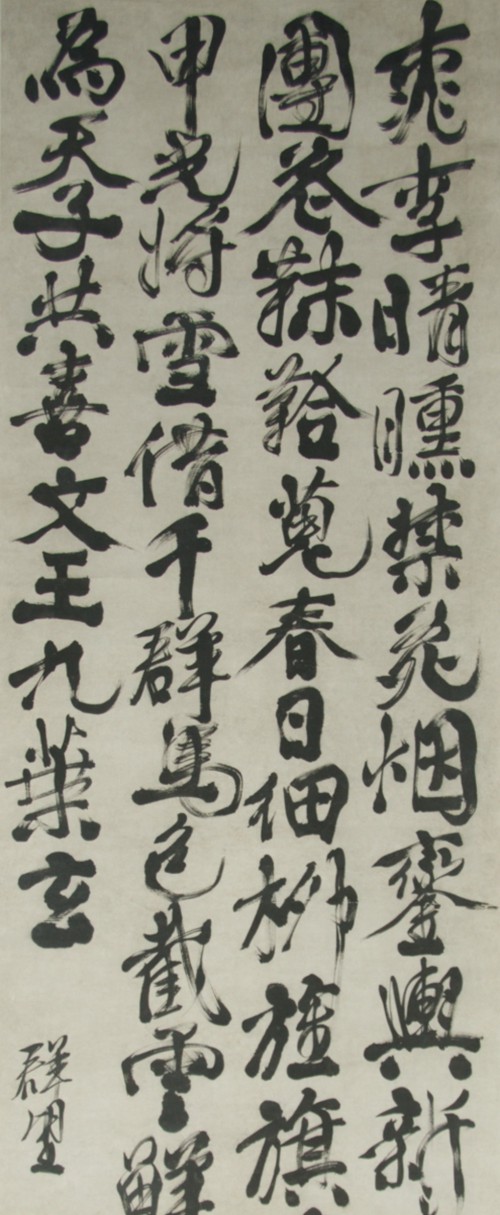 桃李晴曛禁苑烟鑾輿新
團靺鞈蒐春日細柳旌旗
甲光將雪借千群馬色截雲鮮
為天子共喜文王九葉玄
群